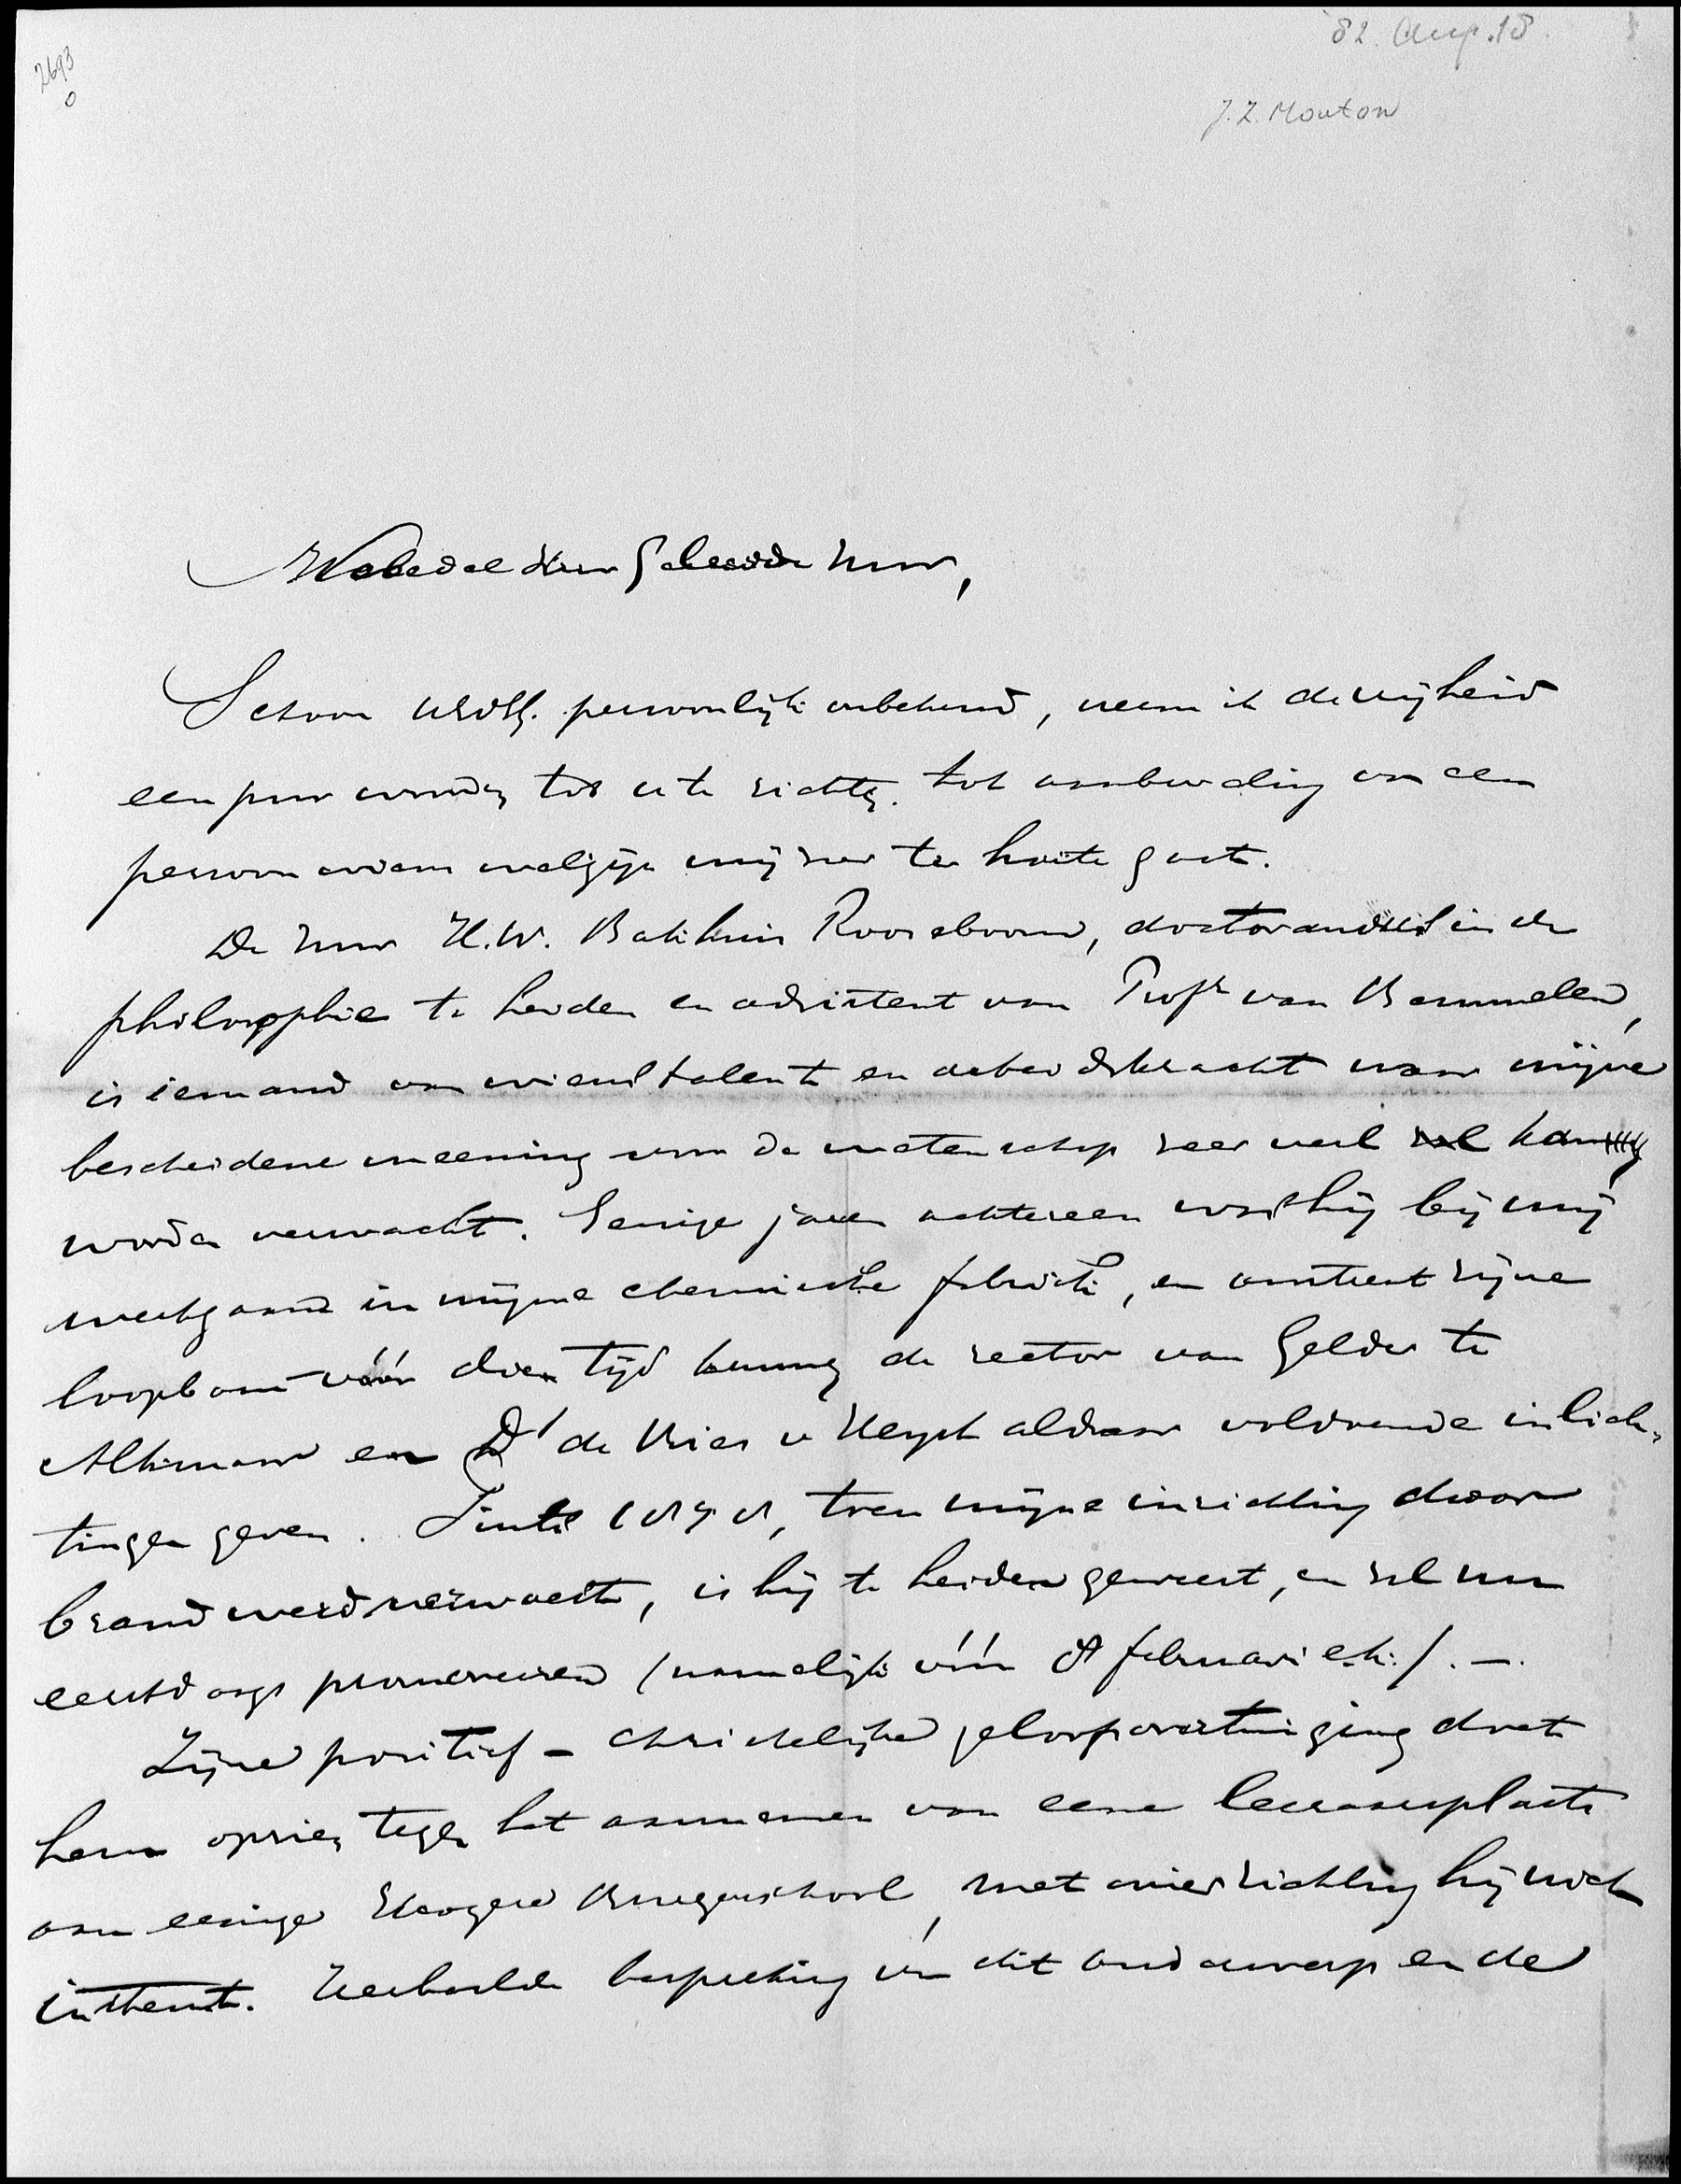 2693
0
82. Aug. 18.
J.Z. Mouton
Weledel Zeer Geleerde Heer,
Schoon UEdG. persoonlijk onbekend, neem ik de vrijheid
een paar woorden tot u te richten tot aanbeveling van een
persoon wiens welzijn mij zeer ter harte gaat.
De Heer H.W. Bakhuis Roozeboom, doctorandus in de
philosophie te Leiden en adsistent van Profr van Bemmelen,
is iemand van wiens talent en arbeidskracht naar mijne
bescheidene meening voor de wetenschap zeer veel kan
worden verwacht. Eenige jaren achtereen was hij bij mij
werkzaam in mijne chemische fabriek, en omtrent zijne
loopbaan vóór dien tijd kunnen de rector van Gelder te
Alkmaar en Dr de Vries v Heyst aldaar voldoende inlich-
tingen geven. Sints 1878, toen mijne inrichting door
brand werd verwoest, is hij te Leiden geweest, en zal nu
eerstdaags promoveeren (namelijk vóór februari e.k.). -
Zijne positief - christelijke geloofsovertuiging doet
hem opzien tegen het aannemen van eene leeraarsplaats
aan eenige Hoogere Burgerschool, met wier richting hij niet
instemt. Herhaalde bespreking van dit onderwerp en de